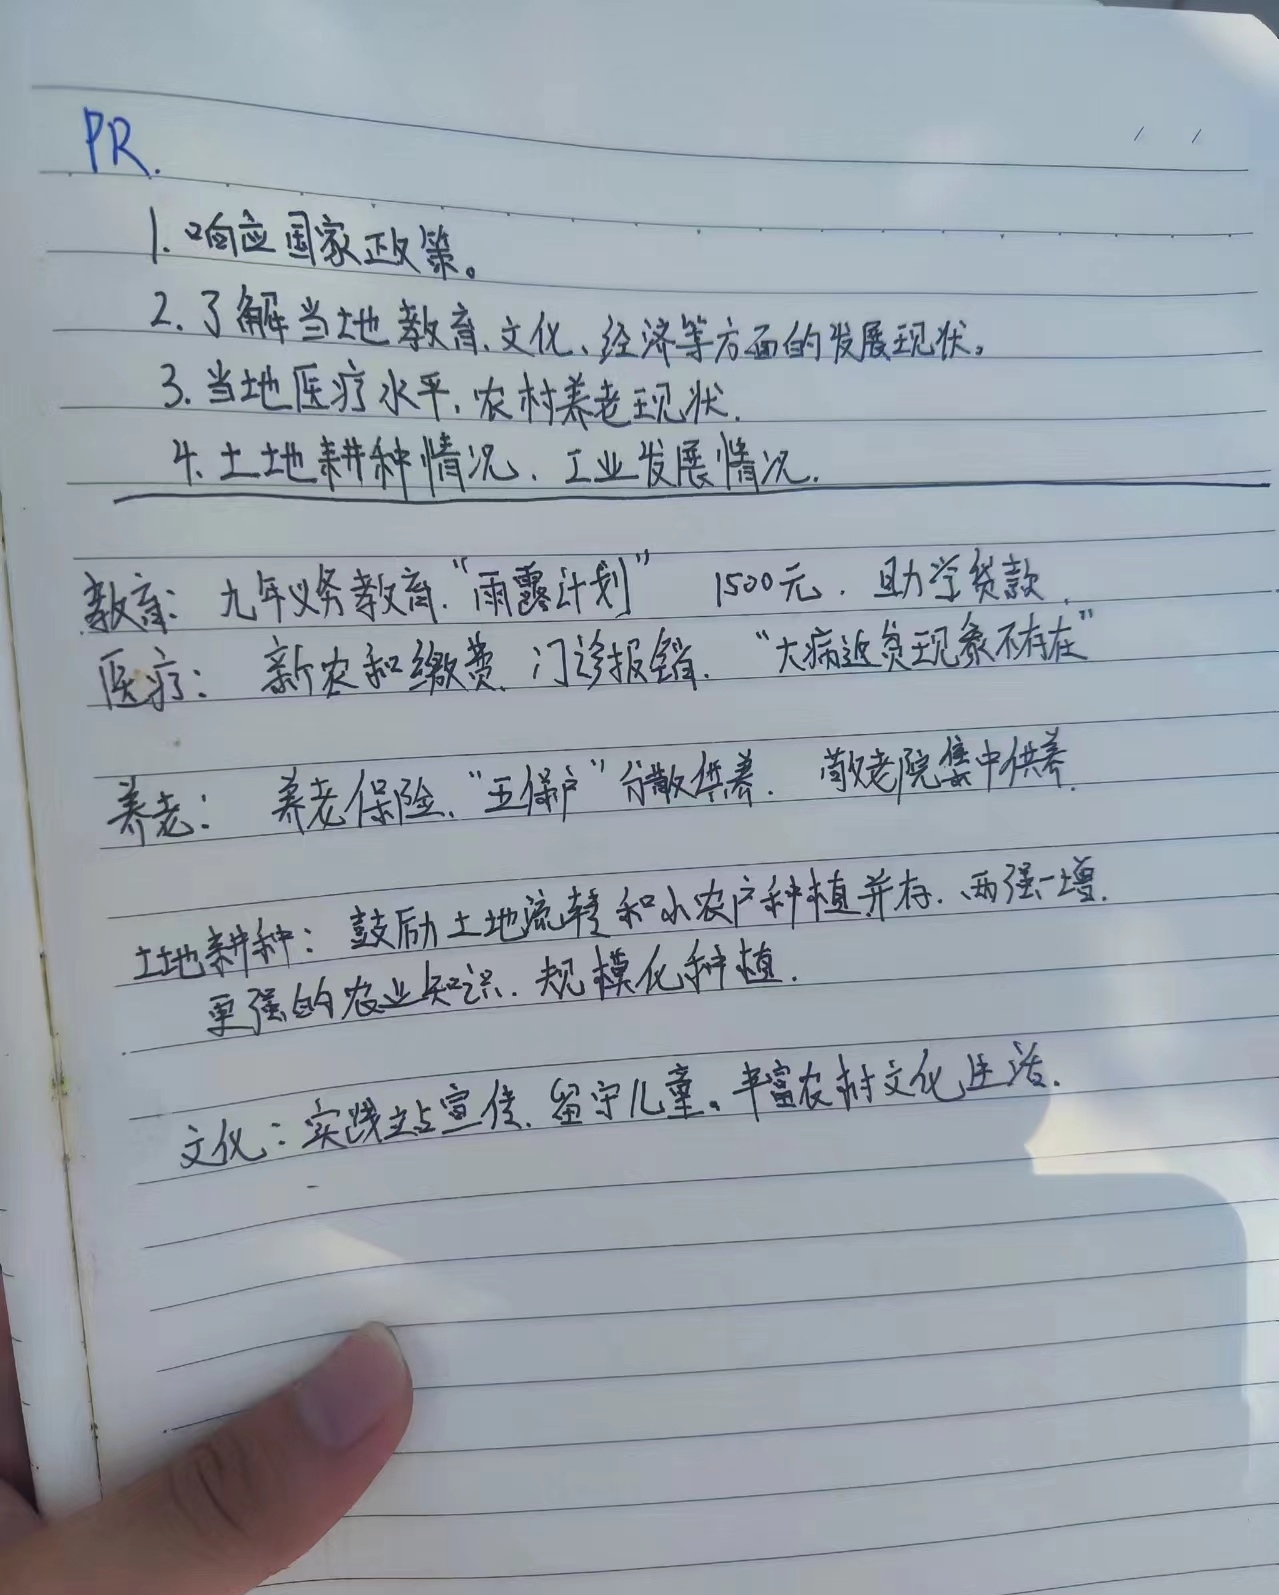 PR.
1. 响应国家政策。
2. 了解当地教育、文化、经济等方面的发展现状。
3. 当地医疗水平，农村养老现状.
4. 土地耕种情况、工业发展情况.
教育： 九年义务教育.“雨露计划” 1500元. 助学贷款.
医疗： 新农和缴费、门诊报销. “大病返贫现象不存在”
养老： 养老保险、“五保户”分散供养. 敬老院集中供养.
土地耕种： 鼓励土地流转和小农户种植并存. 两强一增.
更强的农业知识. 规模化种植.
文化：实践站宣传. 留守儿童。丰富农村文化生活.